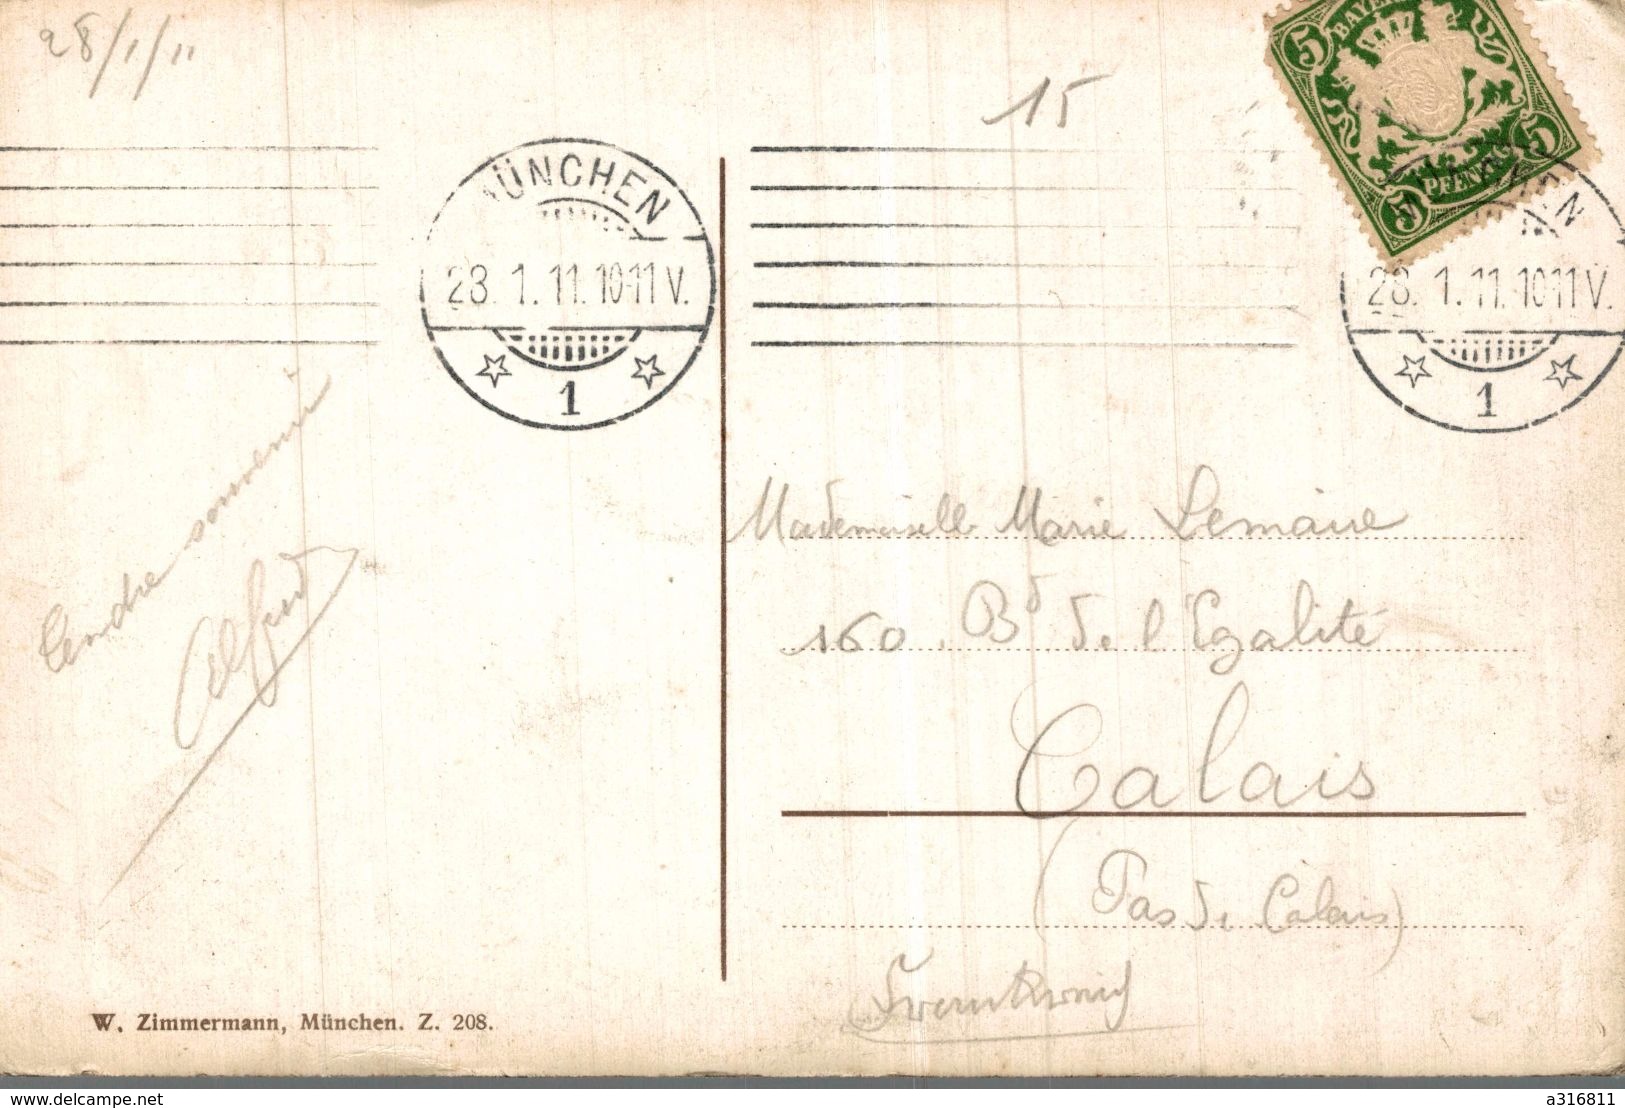 28/1/11
15
BAYERN
5
5
5
PFENNIG
MÜNCHEN
28. 1. 11. 10-11 V.
1
MÜNCHEN
28. 1. 11. 10-11 V.
1
Tendre souvenir
Alfred
Mademoiselle Marie Lemaire
160. Bd de l'Egalité
Calais
(Pas de Calais)
Frankreich
W. Zimmermann, München. Z. 208.
delcampe.net
a316811